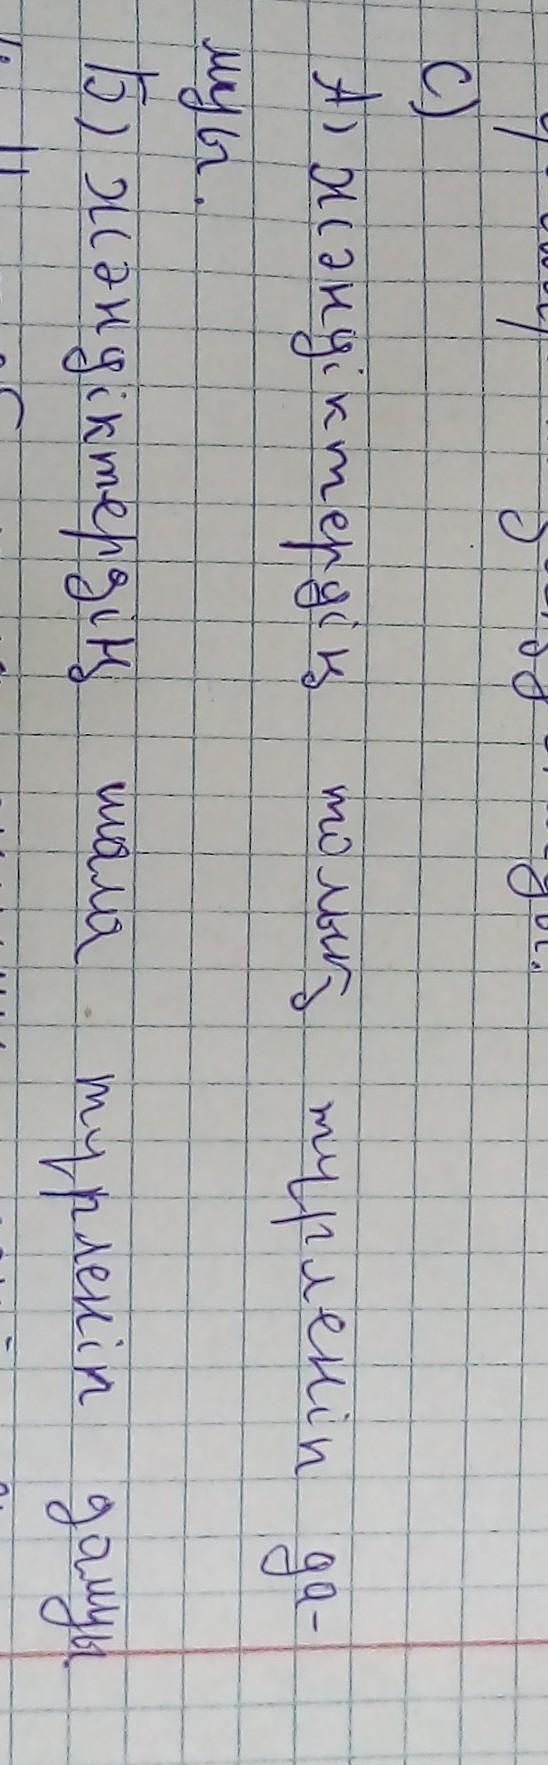 С)
А) Жәндіктердің толық түрленіп да-
муы.
Б) Жәндіктердің шала түрленіп дамуы.